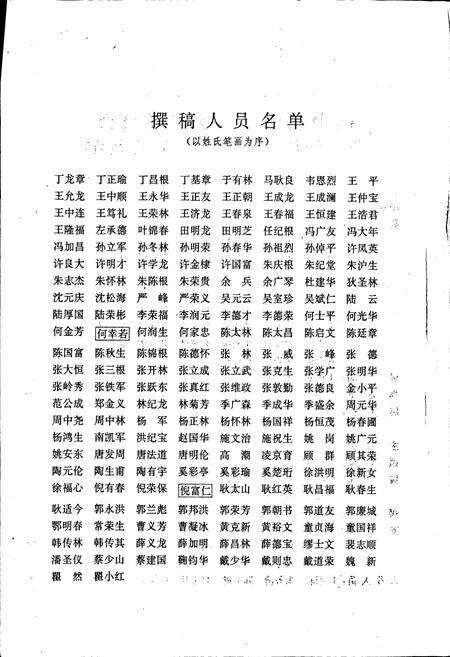 撰稿人员名单
(以姓氏笔画为序)
丁龙章 丁正瑜 丁昌根 丁基章 于有林 马耿良 韦恩烈 王平
王允龙 王中顺 王永华 王正友 王正朝 王成龙 王成澜 王仲宝
王中连 王笃礼 王荣林 王济龙 王春泉 王春福 王恒建 王浩君
王隆福 左承德 叶锦春 田明龙 田明芝 任纪根 冯广友 冯大年
冯加昌 孙立军 孙冬林 孙明荣 孙春华 孙祖烈 孙倬平 许凤英
许良大 许明才 许学龙 许金棣 许国富 朱庆根 朱纪堂 朱沪生
朱志杰 朱怀林 朱陈根 朱荣贵 余兵 余广琴 杜建华 狄圣林
沈元庆 沈松海 严峰 严荣义 吴元云 吴室珍 吴斌仁 陆云
陆厚国 陆荣彬 李荣福 李润元 李德才 李德荣 何士平 何光华
何金芳 何幸若 何润生 何家忠 陈太林 陈太昌 陈启文 陈廷章
陈国富 陈秋生 陈锦根 陈德怀 张林 张威 张峰 张德
张大恒 张三根 张开林 张立成 张立武 张克生 张学广 张明华
张岭秀 张铁军 张跃东 张真红 张维政 张敦勤 张德良 金小平
范公成 郑金义 林纪龙 林菊芳 季广森 季成华 季盛余 周元华
周中尧 周中林 杨军 杨正林 杨怀林 杨国祥 杨恒茂 杨春國
杨鸿生 南凯军 洪纪宝 赵国华 施文治 施祝生 姚岗 姚广元
姚安东 唐发周 唐法道 唐明伦 高潮 凌京育 顾群 顾其荣
陶元伦 陶生甫 陶有宇 奚彩亭 奚彩瑜 奚楚珩 徐洪明 徐新女
徐福心 倪有春 倪荣保 倪富仁 耿太山 耿红英 耿昌福 耿春生
耿适今 郭永洪 郭兰彪 郭邦洪 郭荣芳 郭朝书 郭道友 郭廉城
鄂明春 常荣生 曹义芳 曹凝冰 黄克新 黄裕文 童贞海 童国祥
韩传林 韩传其 薛义龙 薛加明 薛昌林 薛德宝 缪士文 裴志顺
潘圣仪 蔡少山 蔡建国 鞠钧华 戴少华 戴则忠 戴道荣 魏新
瞿然 瞿小红